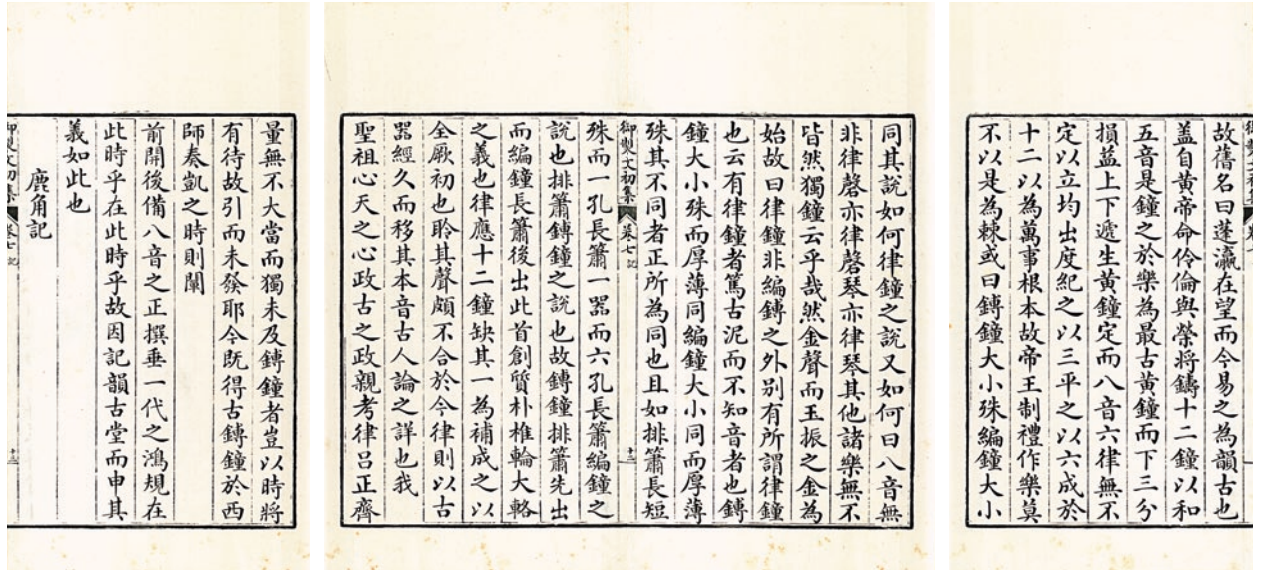 故舊名曰蓬瀛在望而今易之為韻古也
盖自黃帝命伶倫與榮將鑄十二鐘以和
五音是鐘之於樂為最古黃鐘而下三分
損益上下遞生黃鐘定而八音六律無不
定以立均出度紀之以三平之以六成於
十二以為萬事根本故帝王制禮作樂莫
不以是為棘或曰鎛鐘大小殊編鐘大小
同其說如何律鐘之說又如何曰八音無
非律磬亦律磬琴亦律琴其他諸樂無不
皆然獨鐘云乎哉然金聲而玉振之金為
始故曰律鐘非編鎛之外別有所謂律鐘
也云有律鐘者篤古泥而不知音者也鎛
鐘大小殊而厚薄同編鐘大小同而厚薄
殊其不同者正所為同也且如排簫長短
御製文初集 卷七 記 十二
殊而一孔長簫一器而六孔長簫編鐘之
說也排簫鎛鐘之說也故鎛鐘排簫先出
而編鐘長簫後出此首創質朴椎輪大輅
之義也律應十二鐘缺其一為補成之以
全厥初也聆其聲頗不合於今律則以古
器經久而移其本音古人論之詳也我
聖祖心天之心政古之政親考律呂正齊
量無不大當而獨未及鎛鐘者豈以時將
有待故引而未發耶今既得古鎛鐘於西
師奏凱之時則闡
前開後備八音之正撰垂一代之鴻規在
此時乎在此時乎故因記韻古堂而申其
義如此也
鹿角記
御製文初集 卷七 記 十三